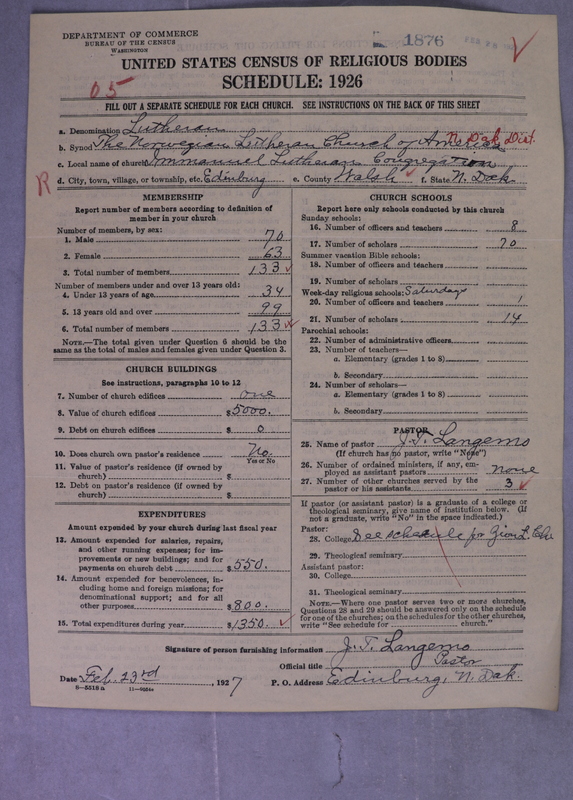 DEPARTMENT OF COMMERCE
BUREAU OF THE CENSUS
WASHINGTON
1876
UNITED STATES CENSUS OF RELIGIOUS BODIES
SCHEDULE: 1926
05
FILL OUT A SEPARATE SCHEDULE FOR EACH CHURCH. SEE INSTRUCTIONS ON THE BACK OF THIS SHEET
a. Denomination Lutheran
b. Synod The Norwegian Lutheran Church of America N. Dak. Dist.
c. Local name of church Immanuel Lutheran Congregation
R d. City, town, village, or township, etc. Edinburg e. County Walsh f. State N. Dak.
MEMBERSHIP
Report number of members according to definition of
member in your church
Number of members, by sex:
1. Male 70
2. Female 63
3. Total number of members 133
Number of members under and over 13 years old:
4. Under 13 years of age 34
5. 13 years old and over 99
6. Total number of members 133
NOTE.—The total given under Question 6 should be the
same as the total of males and females given under Question 3.
CHURCH BUILDINGS
See instructions, paragraphs 10 to 12
7. Number of church edifices one
8. Value of church edifices $5000.
9. Debt on church edifices $ 0
10. Does church own pastor's residence No.
Yes or No
11. Value of pastor's residence (if owned by
church) $
12. Debt on pastor's residence (if owned by
church) $
EXPENDITURES
Amount expended by your church during last fiscal year
13. Amount expended for salaries, repairs,
and other running expenses; for im-
provements or new buildings; and for
payments on church debt $550.
14. Amount expended for benevolences, in-
cluding home and foreign missions; for
denominational support; and for all
other purposes $800.
15. Total expenditures during year $1350.
CHURCH SCHOOLS
Report here only schools conducted by this church
Sunday schools:
16. Number of officers and teachers 8
17. Number of scholars 70
Summer vacation Bible schools:
18. Number of officers and teachers
19. Number of scholars
Week-day religious schools: Saturdays
20. Number of officers and teachers 1
21. Number of scholars 14
Parochial schools:
22. Number of administrative officers
23. Number of teachers—
a. Elementary (grades 1 to 8)
b. Secondary
24. Number of scholars—
a. Elementary (grades 1 to 8)
b. Secondary
PASTOR
25. Name of pastor J. T. Langemo
(If church has no pastor, write "None")
26. Number of ordained ministers, if any, em-
ployed as assistant pastors none
27. Number of other churches served by the
pastor or his assistants 3
If pastor (or assistant pastor) is a graduate of a college or
theological seminary, give name of institution below. (If
not a graduate, write "No" in the space indicated.)
Pastor:
28. College See schedule for Zion L.
29. Theological seminary
Assistant pastor:
30. College
31. Theological seminary
NOTE.—Where one pastor serves two or more churches,
Questions 28 and 29 should be answered only on the schedule
for one of the churches; on the schedules for the other churches,
write "See schedule for church."
Signature of person furnishing information J. T. Langemo
Official title Pastor
Date Feb. 23rd, 1927 P. O. Address Edinburg, N. Dak.